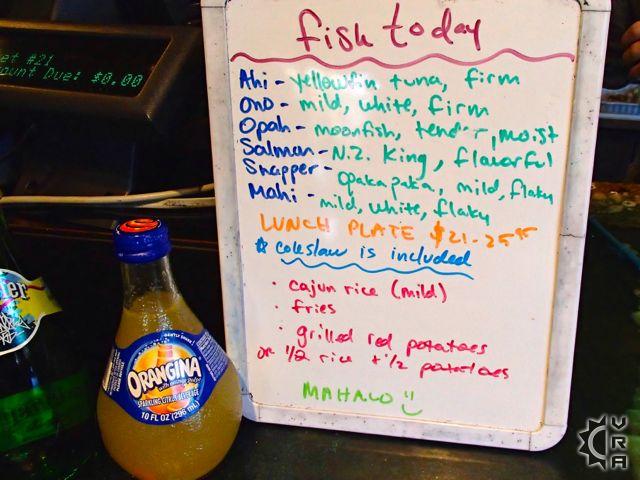 fish today
Ahi - yellowfin tuna, firm
Ono - mild, white, firm
Opah - moonfish, tender, moist
Salmon - N.Z. King, flavorful
Snapper - Opakapaka, mild, flaky
Mahi - mild, white, flaky
LUNCH PLATE $21-25.95
☆ coleslaw is included
· cajun rice (mild)
· fries
· grilled red potatoes
or 1/2 rice + 1/2 potatoes
MAHALO :)
et #21
ount Due: $0.00
GENTLY SHAKE!
ORANGINA
SPARKLING CITRUS BEVERAGE
10 FL OZ (296 mL)
VRA